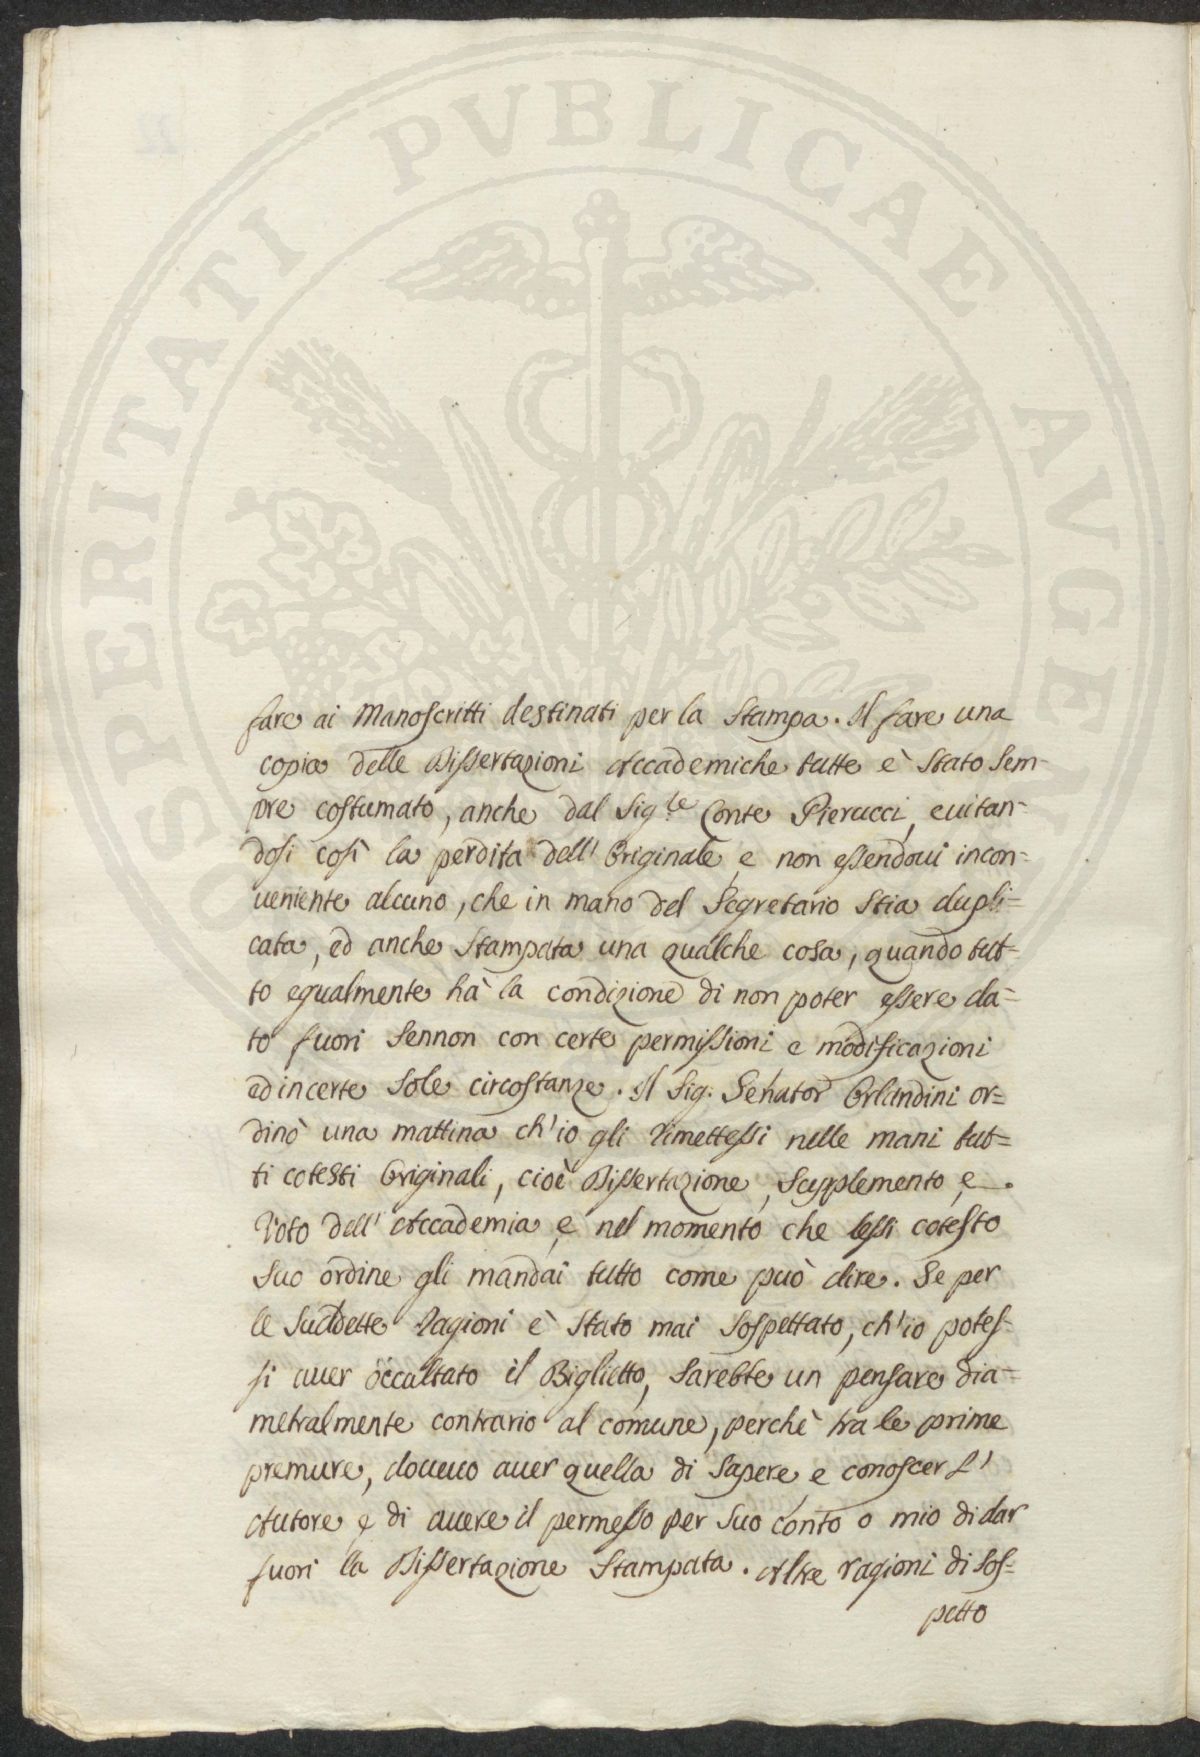 PROSPERITATI PVBLICAE AVGENDAE
fare ai Manoscritti destinati per la Stampa. Il fare una
copia delle Dissertazioni Accademiche tutte è Stato Sem-
pre costumato, anche dal Sig.le Conte Pierucci, euitan-
dosi così la perdita dell' Originale, e non essendoui incon-
ueniente alcuno, che in mano del Segretario Stia dupli=
cata, ed anche Stampata una qualche cosa, quando tut-
to egualmente hà la condizione di non poter essere da=
to fuori Sennon con certe permissioni e modificazioni
ed in certe Sole circostanze. Il Sig: Senator Orlandini or=
dinò una mattina ch'io gli rimettessi nelle mani tut=
ti cotesti Originali, cioè Dissertazione, Supplemento, e
Voto dell' Accademia, e nel momento che lessi cotesto
Suo ordine gli mandai tutto come può dire. Se per
le Suddette ragioni è Stato mai Sospettato, ch'io potes-
si auer occultato il Biglietto, Sarebbe un pensare dia=
metralmente contrario al comune, perchè tra le prime
premure, doueuo auer quella di Sapere, e conoscer L'
Autore, e di auere il permesso per Suo conto o mio di dar
fuori la Dissertazione Stampata. Altre ragioni di Sos=
petto